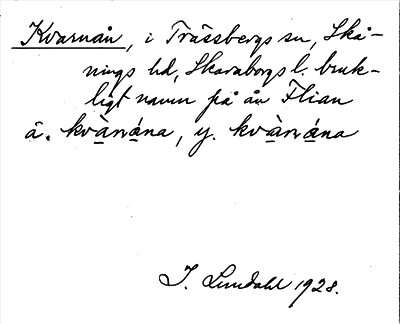 Kvarnån, i Trässbergs sn, Skå-
nings hd, Skaraborgs l. bruk-
ligt namn på ån Flian
ä. kvànána, y. kvànána
I. Lundahl 1928.